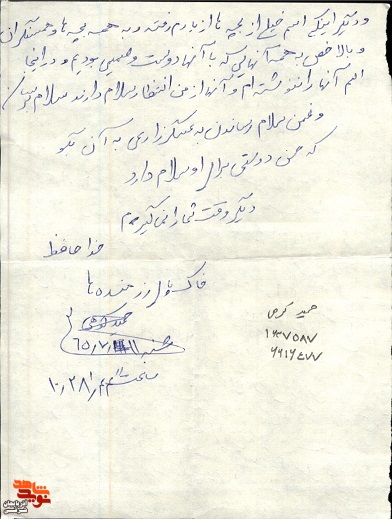 و دیگر اینکه اسم خیلی از بچه ها از یادم رفته و به همه بچه ها و همسنگران
و بالاخص به همه آنهایی که با آنها دوست و صمیمی بودیم و در اینجا
اسم آنها را ننوشته ام و آنها از من انتظار سلام دارند سلام برسان
و ضمن سلام رساندن به عسگر زارعی به آن بگو
که حسن دوستی برای او سلام دارد
دیگر وقت شما را نمی گیرم
خدا حافظ
خاک پای رزمنده ها
حمید کرمی
شنبه ۶۵/۷/
ساعت ۱۰،۲۸
حمید کرمی
۱۶۳۷۵۸۷
شاهد
نوید